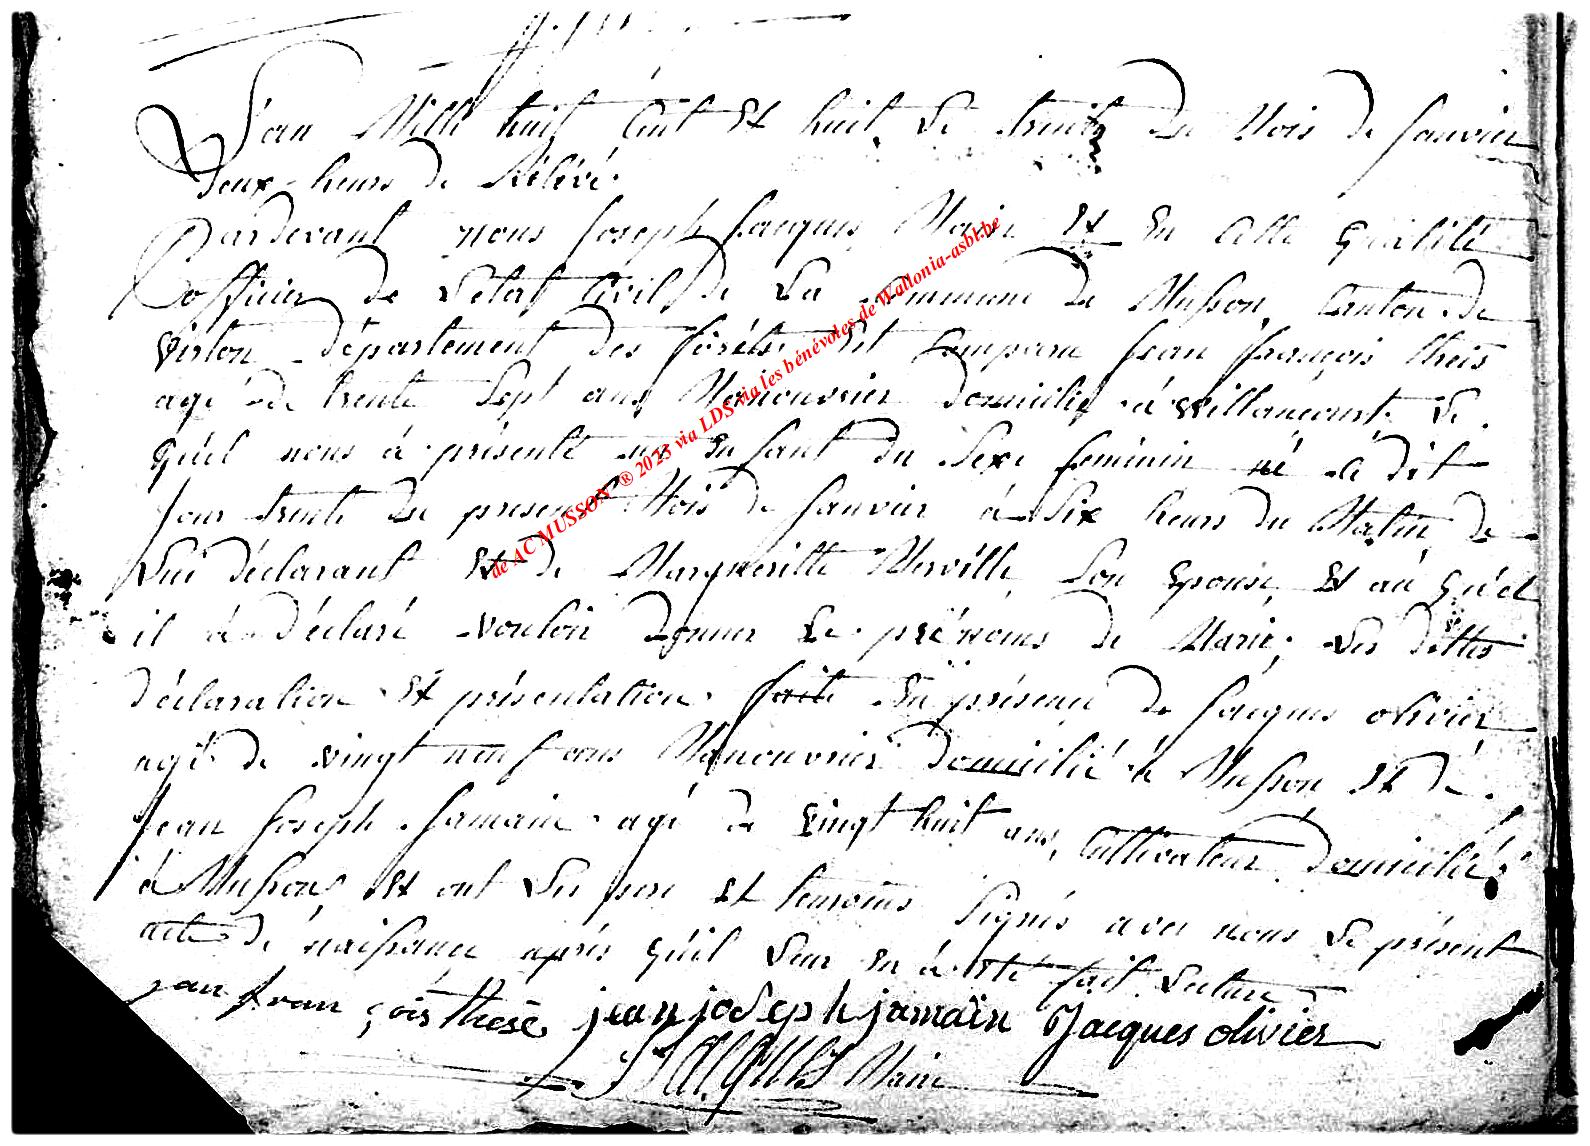 L'an Mille huit Cent Et huit Le trente du Mois de Janvier
Deux heurs de Rélévé.
Pardevant nous Joseph Jacques Maire Et En Cette Qualité
officier de L'etat Civil de La Commune de Musson, Canton de
Virton Département des forêts, Est Comparu Jean françois theis
agé de trente Sept ans Manouvrier domicilié à Willancourt, Le
quel nous à présenté un Enfant du Sexe féminin né Ce dit
Jour trente du présent Mois de Janvier à Six heurs du Matin de
Lui déclarant Et de Margueritte Merville Son Epouse, Et au quel
il à déclaré vouloir donner Le prénoms de Marie; Les dittes
déclaration Et présentation faite En présence de Jacques olivier
agé de vingt neuf ans Manouvrier domicilié à Musson Et de
Jean Joseph Jamain agé de Vingt huit ans, Cultivateur domicilié
à Musson, Et ont Les pere Et temoins Signés avec nous Le présent
acte de naissance après qu'il Leur En à été fait Lecture
jan fran çois thesē jean joSeph jamaïn Jacques olivier
J JACQUES Maire
de AC MUSSON ® 2023 via LDS via les bénévoles de Wallonia-asbl.be